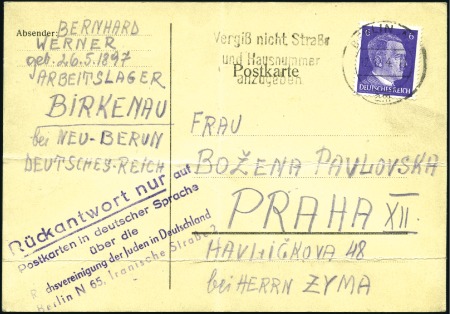 Absender: BERNHARD
WERNER
geb. 26.5.1897
ARBEITSLAGER
BIRKENAU
bei NEU-BERUN
DEUTSCHES-REICH
Vergiß nicht, Straße
und Hausnummer
anzugeben
Postkarte
BERLIN
6
DEUTSCHES REICH
FRAU
BOŽENA PAVLOVSKA
PRAHA XII.
HAVLIČKOVA 48
bei HERRN ZYMA
Rückantwort nur auf
Postkarten in deutscher Sprache
über die
chsvereinigung der Juden in Deutschland
Berlin N 65, Iranische Straße 2